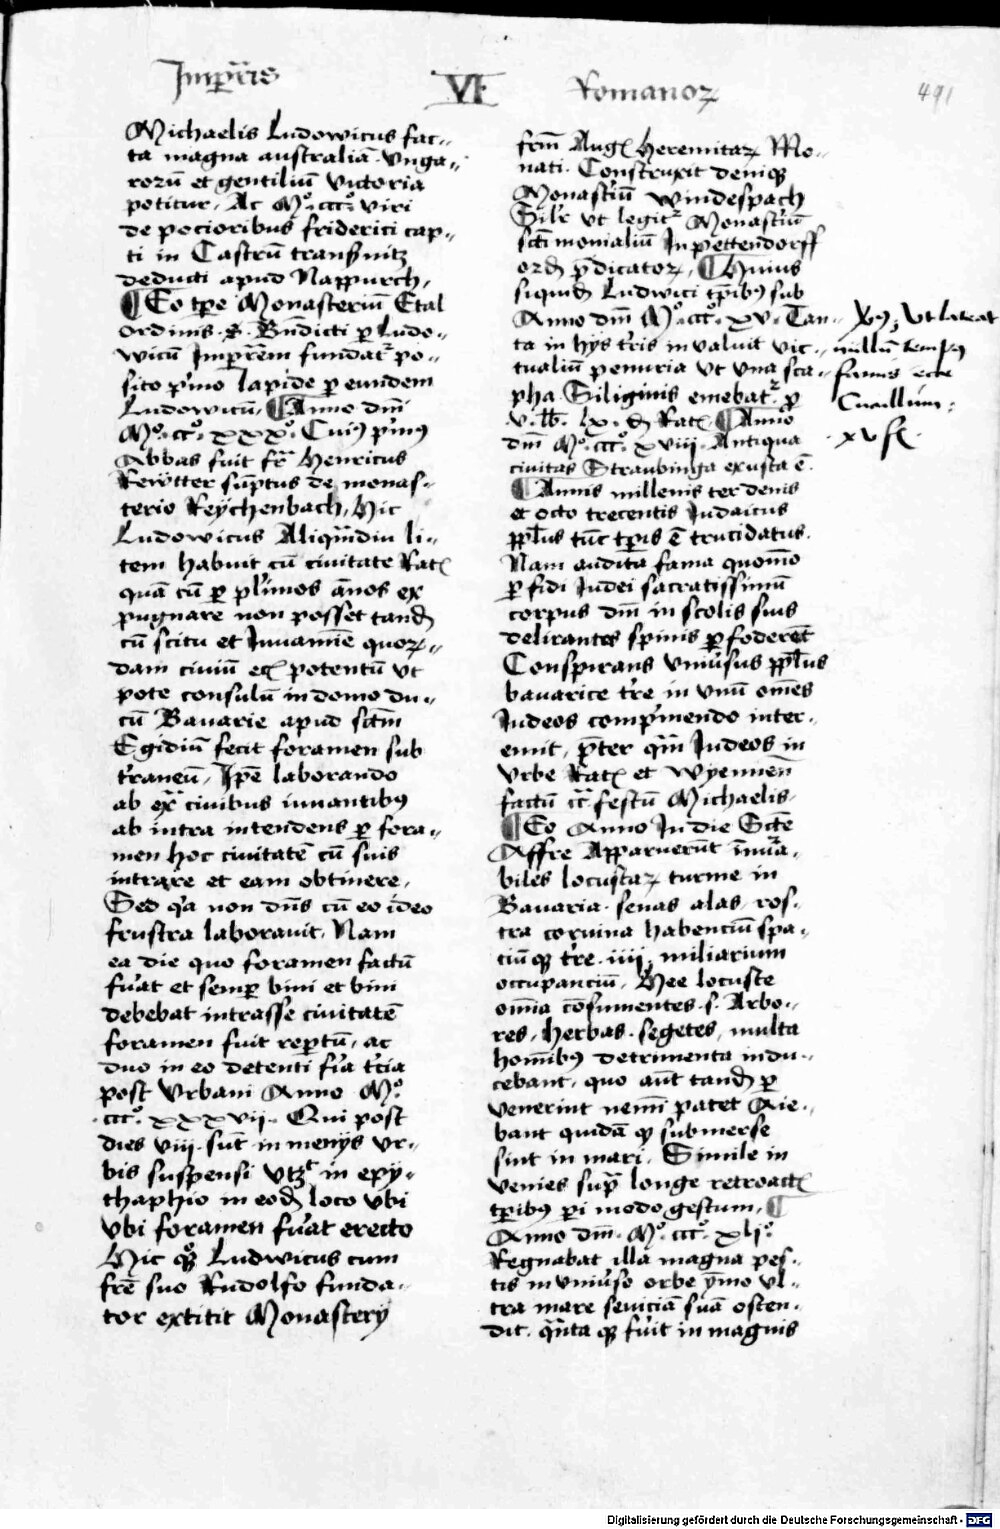 Imp̄ris VI Romanoꝝ 491
Michaelis Ludowicus fac-
ta magna australiā. Unga-
rorū et gentiliū victoria
potitur, Ac Mº.cccº. viri
de pocioribus friderici cap-
ti in Castrū transnitz
deducti apud Nappurch,
¶ Eo tp̄re Monasteriū Etal
ordinis .s. Bn̄dicti p̲ Ludo-
wicū Imp̄rem fundatᵣ po-
sito pͥmo lapide p̲ eundem
Ludowicū, ¶ Anno dn̄i
Mº.ccº.xxxº. Cuiꝰ pͥmꝰ
Abbas fuit fr̄ Henricus
Rewtter sūptus de monas-
terio Reychenbach, Hic
Ludowicus Aliqm̄diu li-
tem habuit cū civitate Ratꝭ
quā cū p̲ plͥmos ānos ex
pugnare non posset tandē
cū scitu et Juvamīe quoꝝ-
dam civiū ecꝭ potentū ut
pote consulū in domo du-
cū Bavarie apud sctm̄
Egidiū fecit foramen sub
tͬraneū, Ip̄e laborando
ab exͣ civibus iuvantibꝰ
ab intra intendens p̲ fora-
men hoc civitatē cū suis
intrare et eam obtinere,
Sed qͣa non dn̄s cū eo ideo
frustra laboravit, Nam
ea die quo foramen factū
fuͬat et semp̲ bini et bini
debebāt intrasse civitatē
foramen fuit rep̲tū, ac
duo in eo detenti fīa tͬcia
post Urbani Anno Mº.
.cccº.xxxvij. Qui post
dies viij. sūt in menijs ur-
bis suspensi utꝫ in epy-
thaphio in eodē loco ubi
ubi foramen fuͬat erecto
Hic qꝫ Ludwicus cum
frē suo Rudolfo funda-
tor extitit Monastery
frm̄ Augꝭ heremitaꝝ Mo-
nati. Construxit deniqꝫ
Monastͬiū Windespach
Silͬr ut legitᵣ Monastͬiū
sctimonialiū In pettendorff
ordī p̄dicatoꝝ, ¶ Huius
siquidē Ludwici tp̲ibꝰ sub
Anno dn̄i Mº.cccº.xvº. Tan-
ta in hijs tr̄is invaluit vic-
tualiū penuria ut una sca-
pha Siliginis emebatᵣ p̲
v. lb. lx. dn̄ Ratꝭ ¶ Anno
dn̄i Mº.cccº.xviij. Antiqua
civitas Straubinga exusta ē.
¶ Annis millenis ter denis
et octo trecentis Judaicus
pp̄lus tūc tp̲is ē trucidatus.
Nam audita fama quomō
p̲fidi Iudei sacratissimū
corpus dn̄i in scolis suis
delirantes spinis p̲foderēt
Conspirans univͬsus pp̄lus
bavarice tr̄e in unū omēs
Iudeos comp̄mendo inter-
emit, p̄ter qͣm Iudeos in
Urbe Ratꝭ et Wyennen̄
factū cͬͣ festū Michaelis,
¶ Eo Anno In die Sctē
Affre Apparuerūt īnūͣa-
biles locustaꝝ turme in
Bavaria. senas alas ros-
tra corvina habenciū spa-
ciūqꝫ tr̄e .iiij. miliarium
occupanciū, Hee locuste
omīa cōsumentes .s. Arbo-
res, herbas. segetes, multa
homībꝰ detrimenta indu-
cebant, quo aūt tandē p̲
venerint nemī patet Aie-
bant quidā qꝫ submerse
sint in mari, Simile in
venies supͣ longe retroactꝭ
tp̲ibꝰ p̲i modo gestum, ¶
Anno dn̄i. Mº.cccº.xljº.
Regnabat illa magna pes-
tis in univͬso orbe ymo ul-
tra mare seviciā suā osten-
dit. qͣnta qꝫ fuͬit in magnis
ut lateat
nullū tempꝰ
famis ecce
Cucullum:
xv